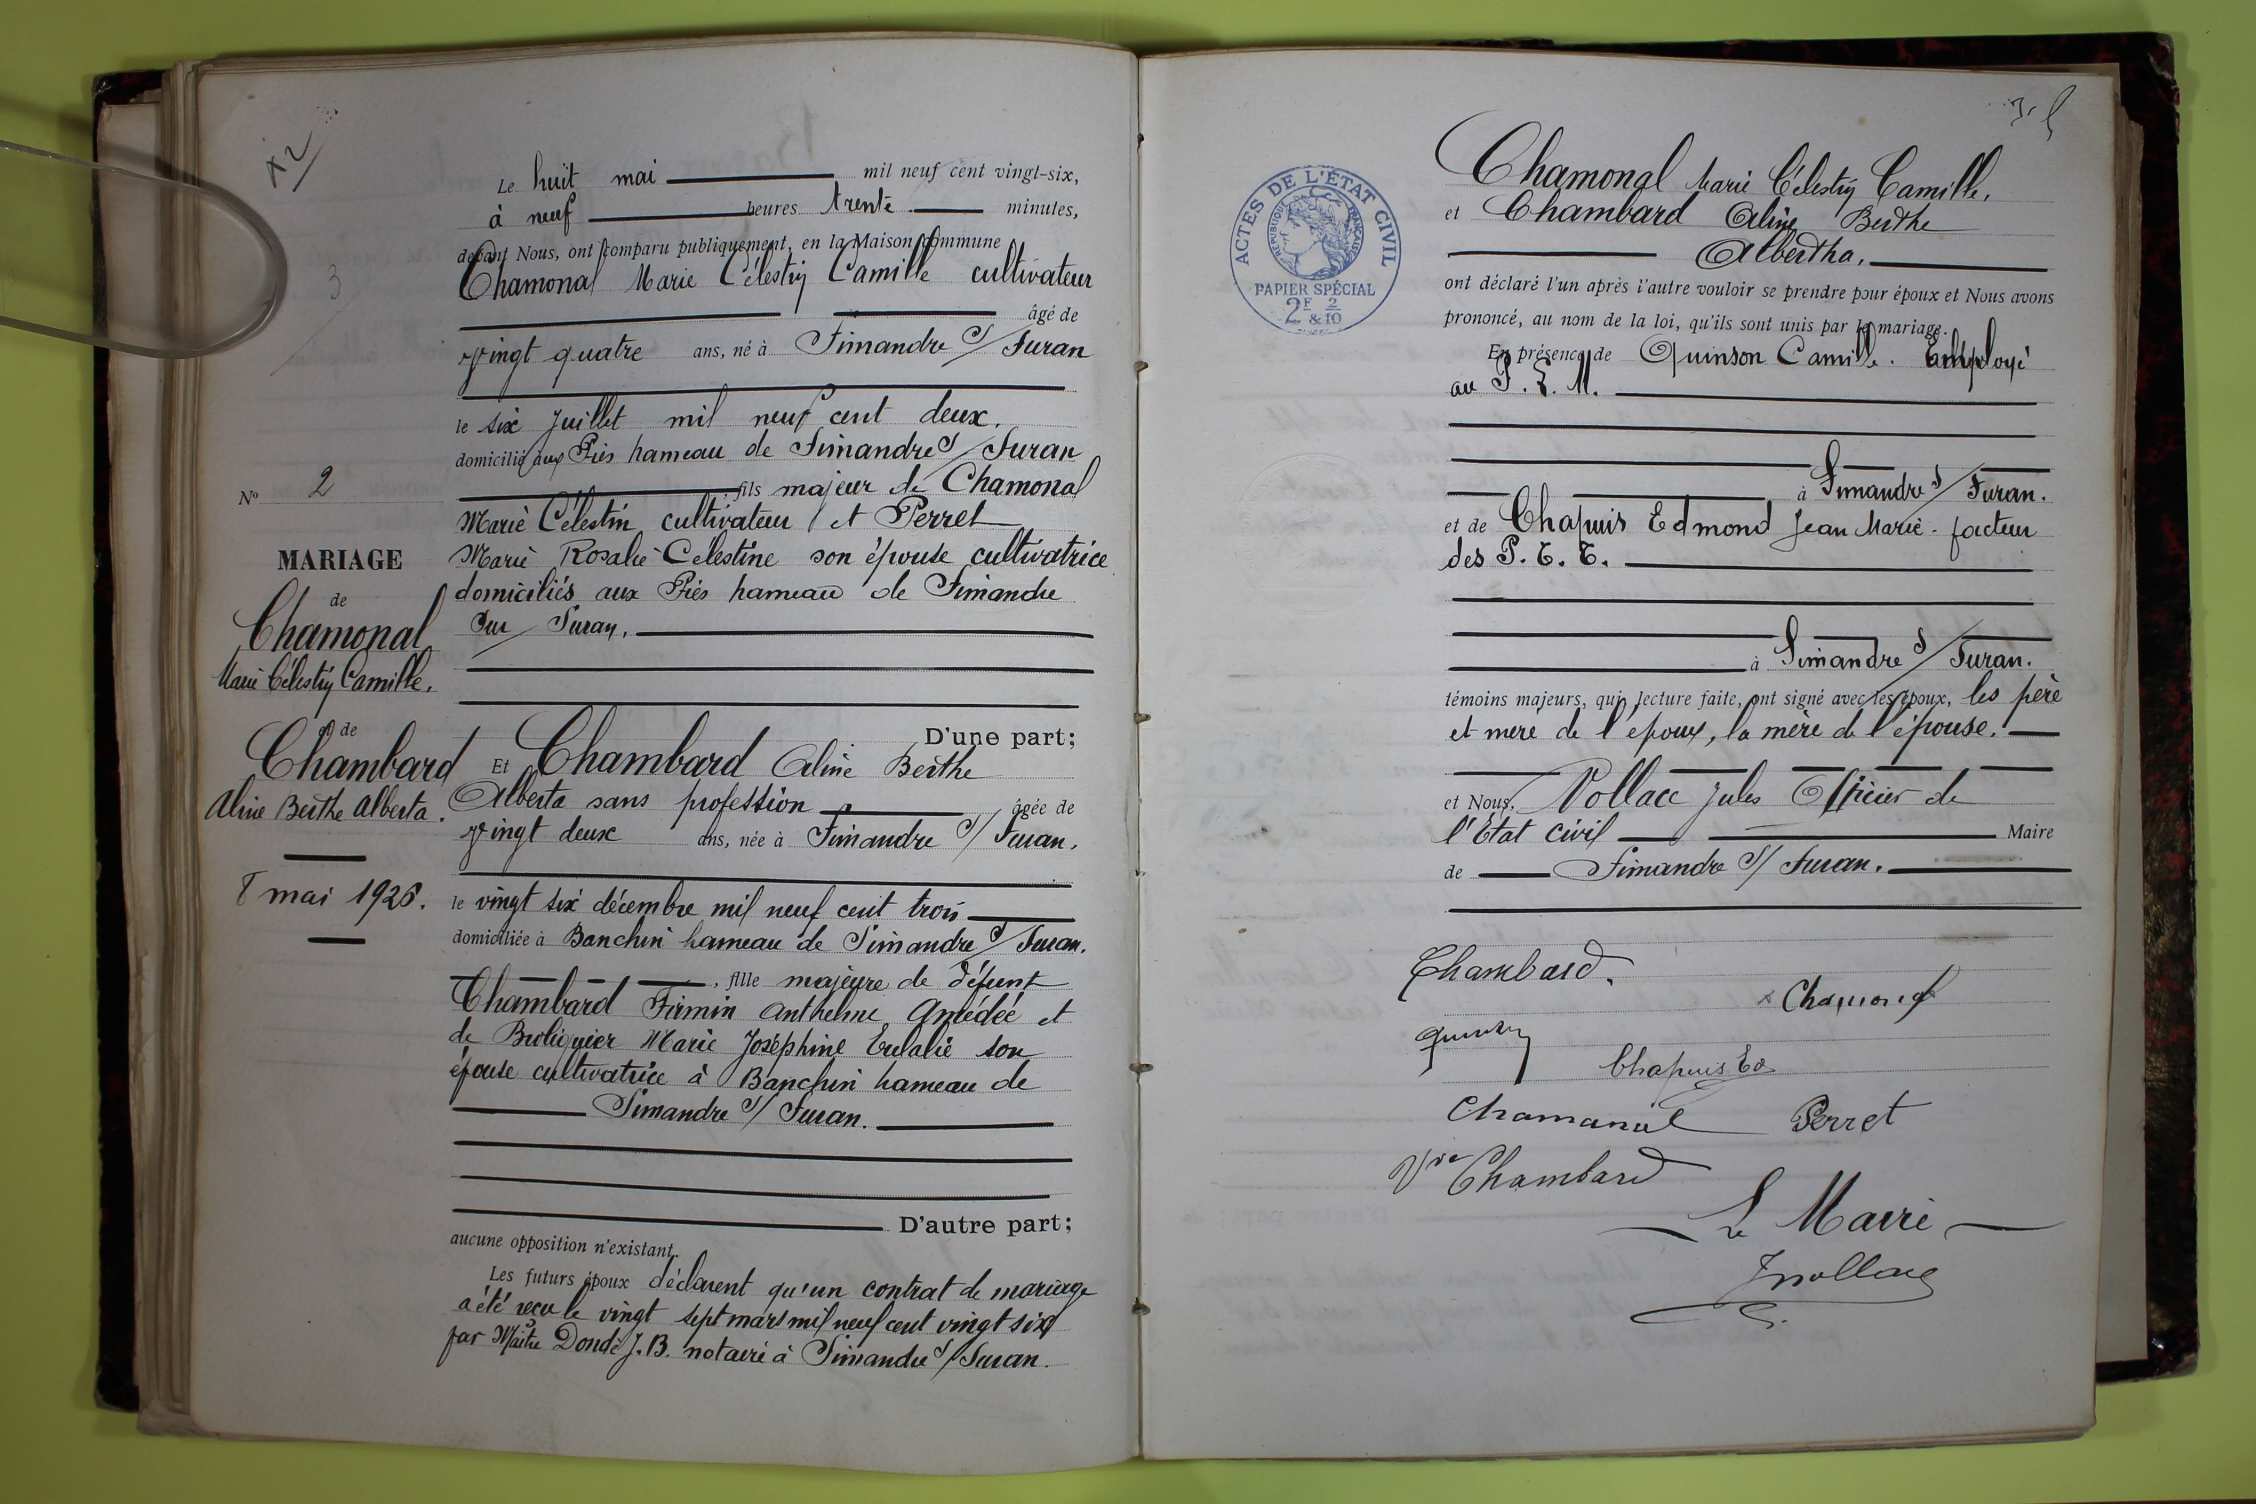 N° 2
MARIAGE
de
Chamonal
Marie Célestin Camille.
et de
Chambard
Aline Berthe Alberta.
8 mai 1926.
Le huit mai mil neuf cent vingt-six,
à neuf heures trente minutes,
devant Nous, ont comparu publiquement, en la Maison commune
Chamonal Marie Célestin Camille cultivateur
âgé de
vingt quatre ans, né à Simandre s/ Suran
le six Juillet mil neuf cent deux,
domicilié aux Piés hameau de Simandre s/ Suran
, fils majeur de Chamonal
Marie Célestin cultivateur et Perret
Marie Rosalie Célestine son épouse cultivatrice
domiciliés aux Piés hameau de Simandre
sur Suran.
D'une part;
Et Chambard Aline Berthe
Alberta sans profession âgée de
vingt deux ans, née à Simandre s/ Suran.
le vingt six décembre mil neuf cent trois
domiciliée à Banchin hameau de Simandre s/ Suran.
, fille majeure de défunt
Chambard Firmin Anthelme Amédée et
de Marie Joséphine Eulalie son
épouse cultivatrice à Banchin hameau de
Simandre s/ Suran.
D'autre part;
aucune opposition n'existant.
Les futurs époux déclarent qu'un contrat de mariage
a été reçu le vingt sept mars mil neuf cent vingt six
par Maître Dondé J.B. notaire à Simandre s/ Suran.
ACTES DE L'ÉTAT CIVIL
RÉPUBLIQUE FRANÇAISE
PAPIER SPÉCIAL
2F & 2/10
Chamonal Marie Célestin Camille.
et Chambard Aline Berthe
Albertha.
ont déclaré l'un après l'autre vouloir se prendre pour époux et Nous avons
prononcé, au nom de la loi, qu'ils sont unis par le mariage.
En présence de Quinson Camille. Employé
au P. L. M.
à Simandre s/ Suran.
et de Chapuis Edmond Jean Marie. facteur
des P. T. T.
à Simandre s/ Suran.
témoins majeurs, qui, lecture faite, ont signé avec les époux, les père
et mère de l'époux, la mère de l'épouse.
et Nous, Vollace Jules Officier de
l'État civil Maire
de Simandre s/ Suran.
Chambard.
x Chamonal
Quinson
Chapuis Ed
Chamonal Perret
Vve Chambard
Le Maire